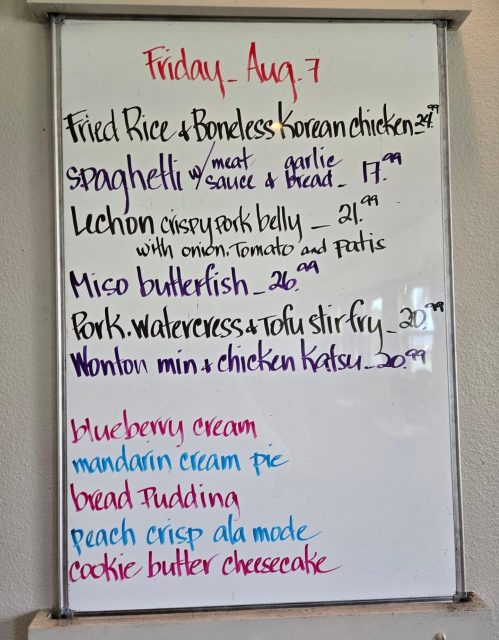 Friday - Aug. 7
Fried Rice & Boneless Korean chicken - 24.99
spaghetti w/ meat sauce & garlic bread - 17.99
Lechon crispy pork belly - 21.99
with onion. Tomato and patis
Miso butterfish - 26.99
Pork. watercress & Tofu stir fry - 20.99
Wonton min & chicken Katsu - 20.99
blueberry cream
mandarin cream pie
bread Pudding
peach crisp ala mode
cookie butter cheesecake